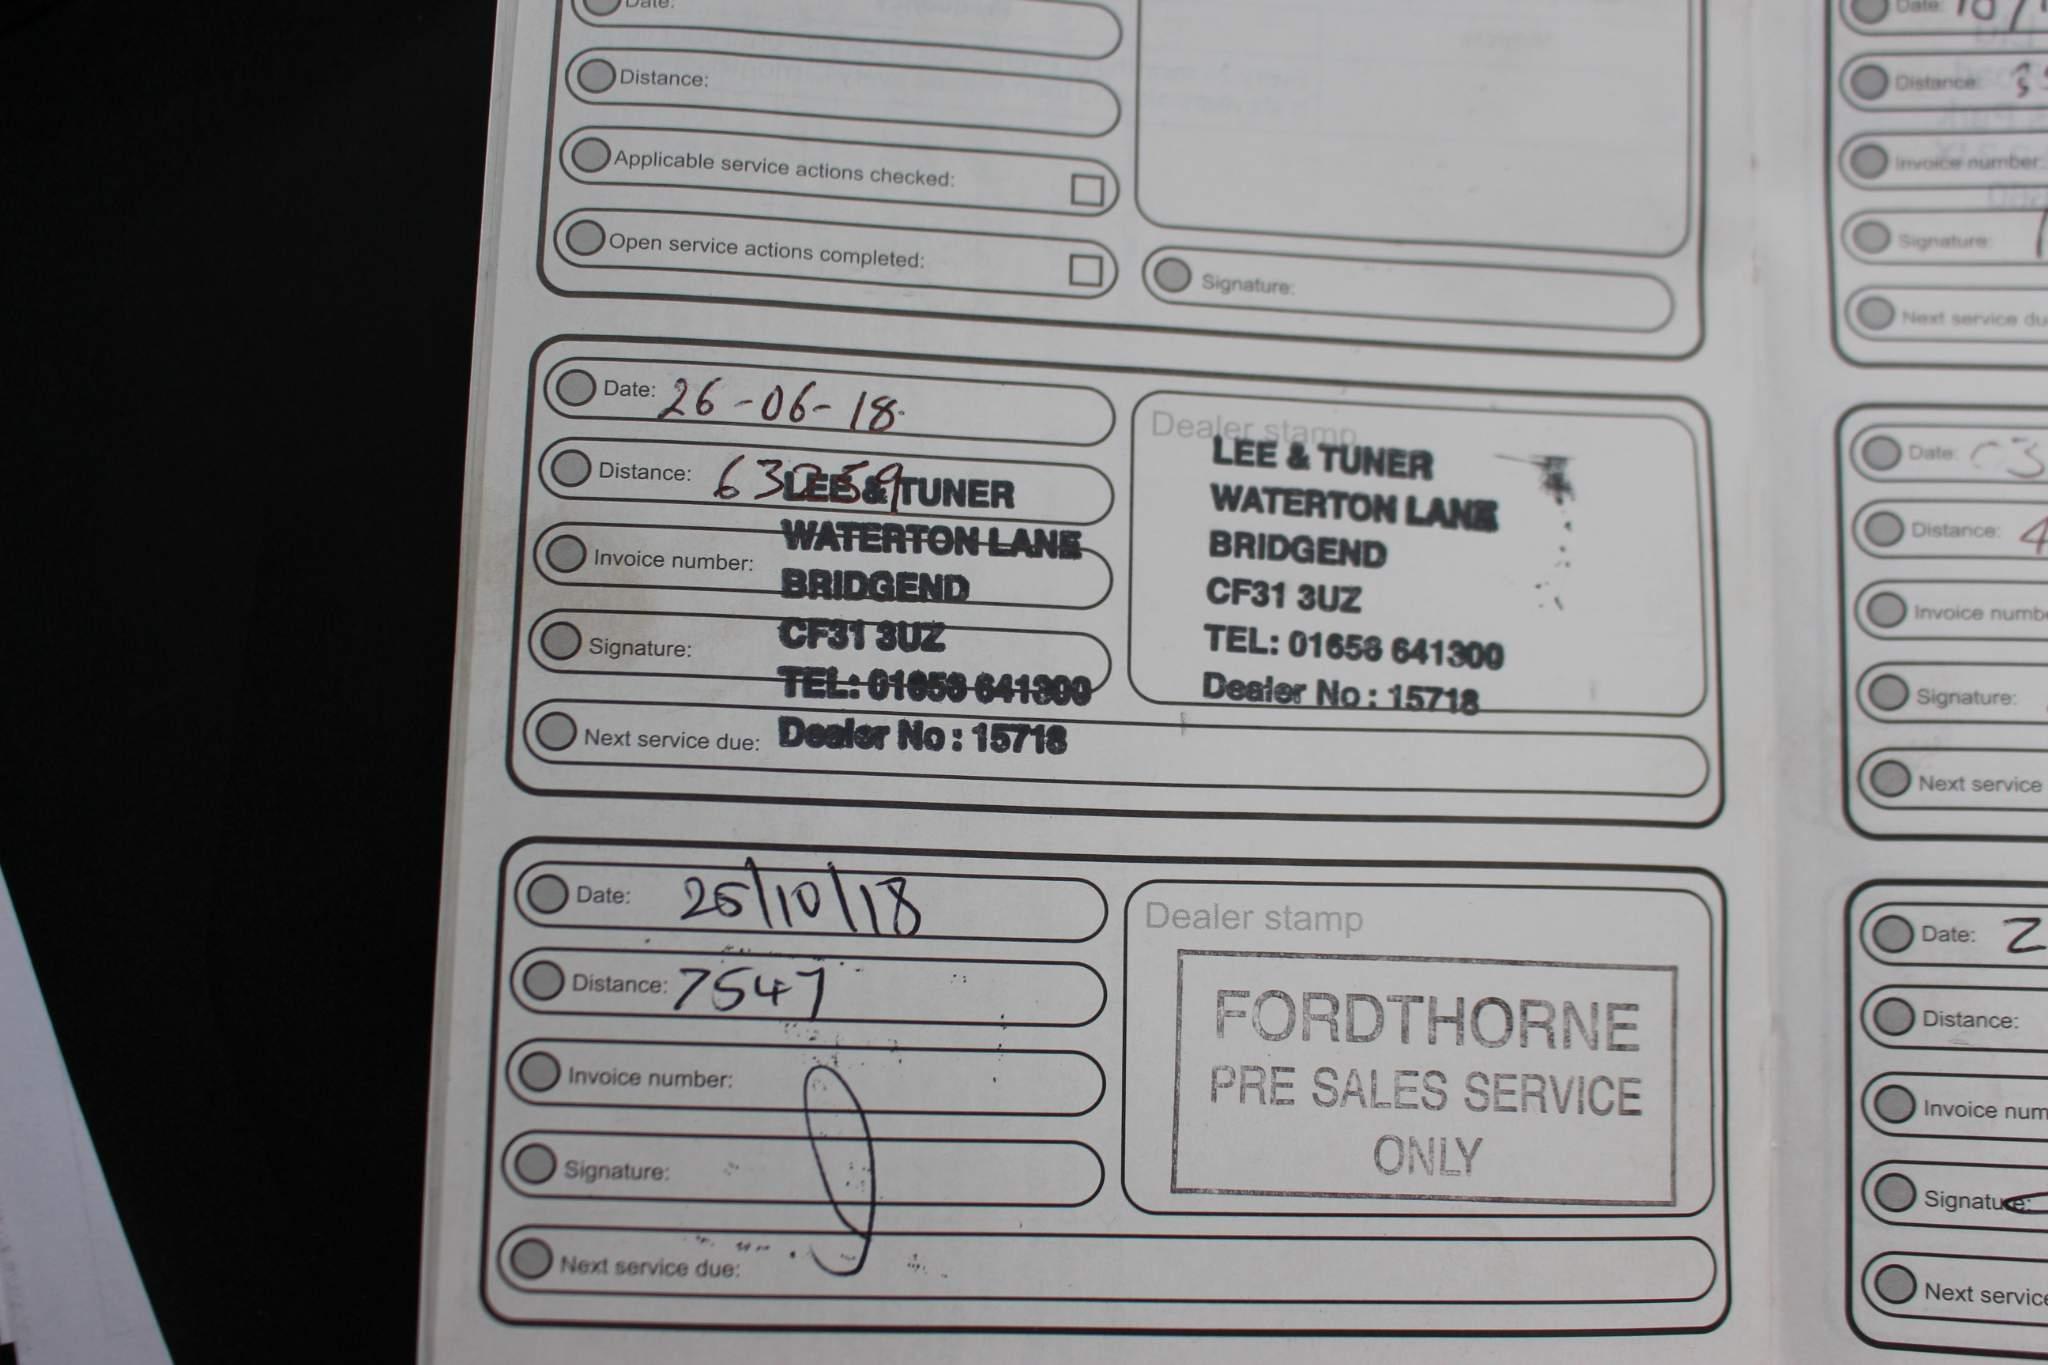 Date:
Distance:
Applicable service actions checked:
Open service actions completed:
Signature:
Date: 26-06-18
Distance: 63259
Invoice number:
Signature:
Next service due:
LEE & TUNER
WATERTON LANE
BRIDGEND
CF31 3UZ
TEL: 01656 641300
Dealer No : 15718
Dealer stamp
LEE & TUNER
WATERTON LANE
BRIDGEND
CF31 3UZ
TEL: 01656 641300
Dealer No : 15718
Date: 25/10/18
Distance: 7547
Invoice number:
Signature:
Next service due:
Dealer stamp
FORDTHORNE
PRE SALES SERVICE
ONLY
Date:
Distance:
Invoice number:
Signature:
Next service du
Date:
Distance: 4
Invoice numbe
Signature:
Next service
Date: 2
Distance:
Invoice num
Signature:
Next service